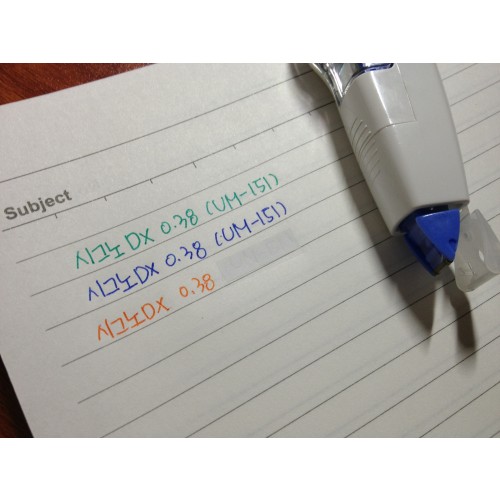 Subject
시그노 DX 0.38 (UM-151)
시그노 DX 0.38 (UM-151)
시그노 DX 0.38